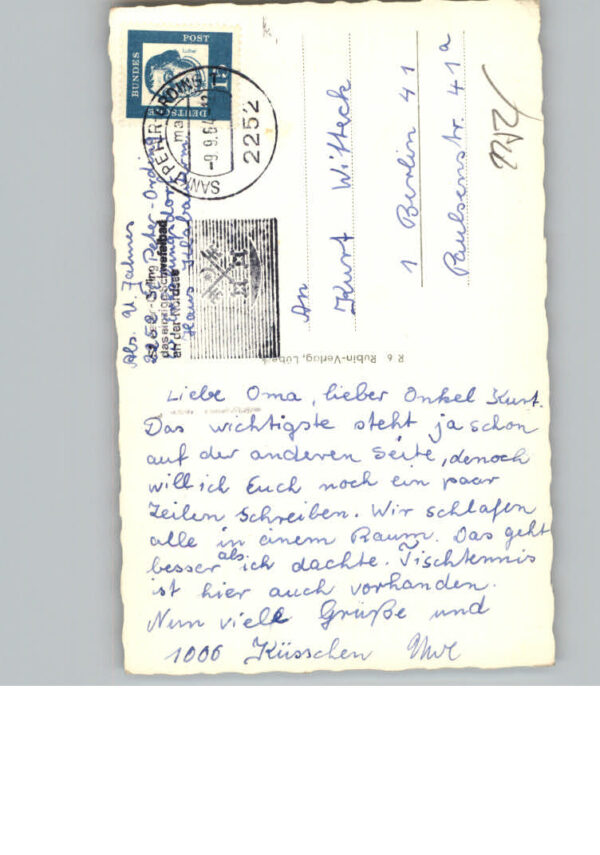 DEUTSCHE
BUNDES
POST
Luther
15
SANKT PETER-ORDING
-9.9.64
2252
das einzige Schwefelbad
an der Nordsee
Abs. U. Jahnes
2252 St. Peter-Ording
Haus
An
Kurt Witteck
1 Berlin 41
Paulsenstr. 41a
R 6 Rubin-Verlag,
Liebe Oma, lieber Onkel Kurt.
Das wichtigste steht ja schon
auf der anderen Seite, denoch
will ich Euch noch ein paar
Zeilen schreiben. Wir schlafen
alle in einem Raum. Das geht
besser als ich dachte. Tischtennis
ist hier auch vorhanden.
Nun viele Grüße und
1000 Küsschen Uwe